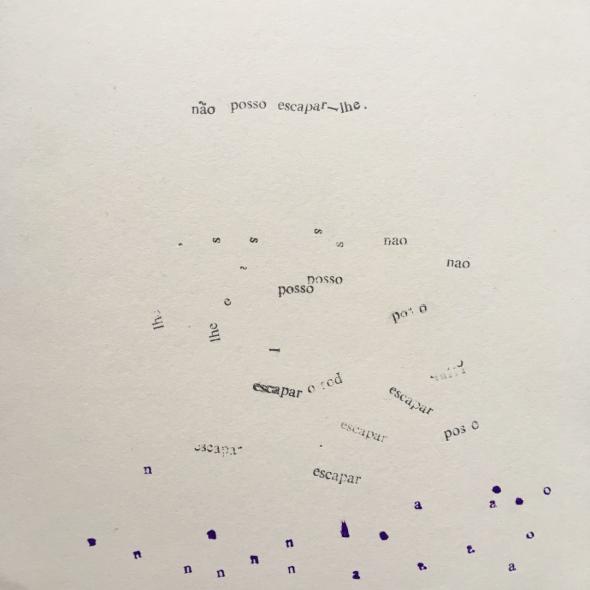 não posso escapar-lhe.
s s s s nao
nao
~
posso
posso
e
lhe
lhe
l
escapar
escapar
escapar
pos o
escapar
n
a a o
n n o
n n n n a a a